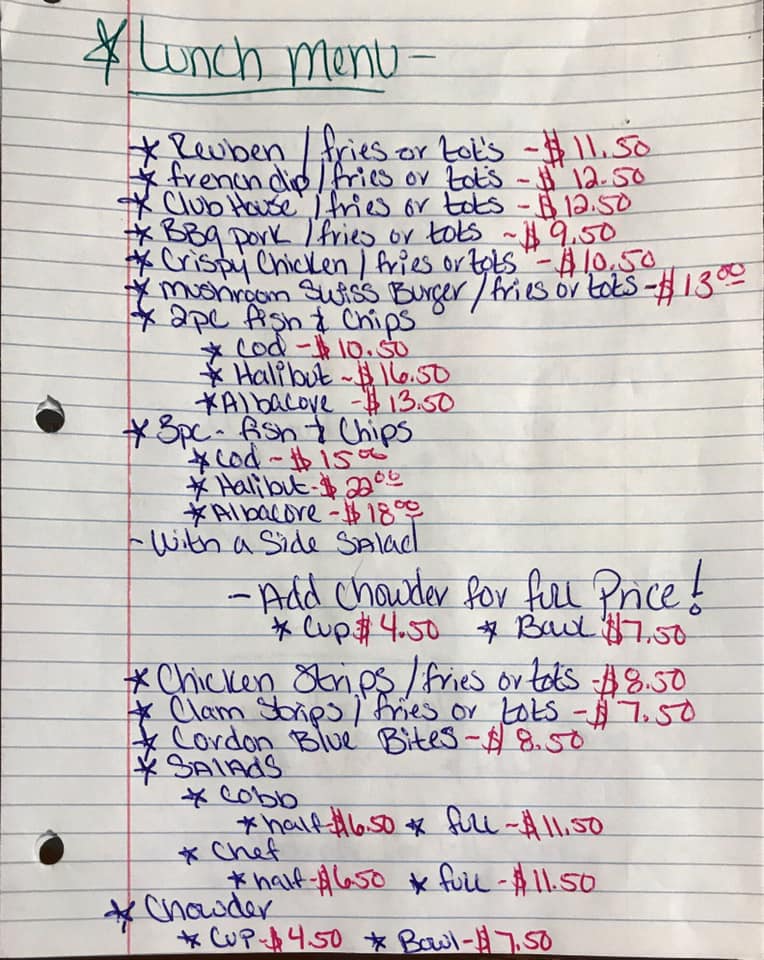 * Lunch Menu -
* Reuben / fries or tot's - $ 11.50
* french dip / fries or tots - $ 12.50
* Club House / fries or tots - $ 12.50
* BBq pork / fries or tots ~ $ 9.50
* Crispy Chicken / fries or tots - $ 10.50
* mushroom Swiss Burger / fries or tots - $ 13 00
* 2pc fish & Chips
* Cod - $ 10.50
* Halibut ~ $ 16.50
* Albacore - $ 13.50
* 3pc - fish & Chips
* Cod - $ 15 00
* Halibut - $ 22 00
* Albacore - $ 18 00
- With a Side Salad
- Add Chowder for full Price!
* Cup $ 4.50 * Bowl $ 7.50
* Chicken Strips / fries or tots - $ 8.50
* Clam Strips / fries or tots - $ 7.50
* Cordon Blue Bites - $ 8.50
* SALADS
* Cobb
* half - $ 6.50 * full ~ $ 11.50
* Chef
* half - $ 6.50 * full - $ 11.50
* Chowder
* Cup - $ 4.50 * Bowl - $ 7.50